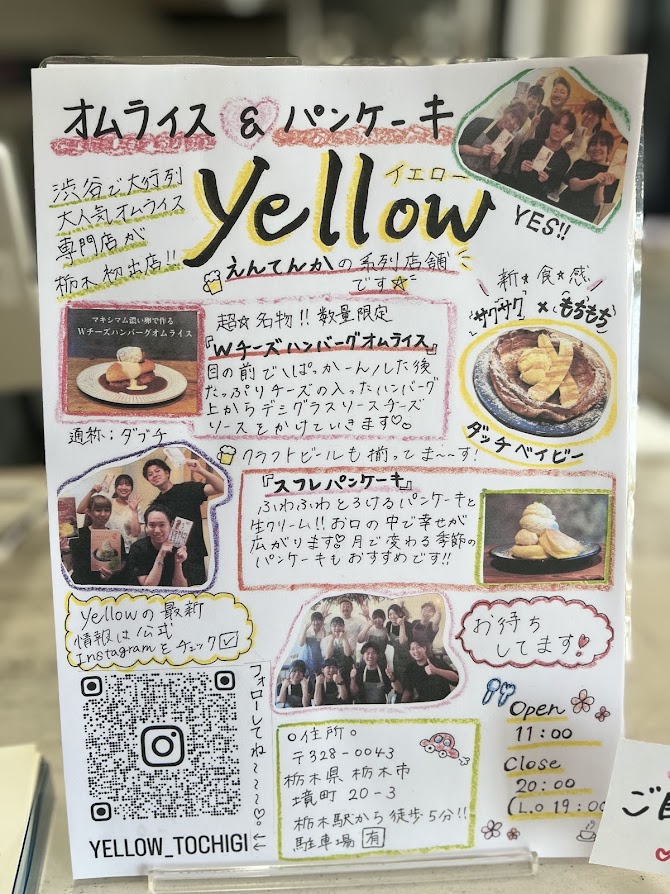 オムライス & パンケーキ
渋谷で大行列
大人気オムライス
専門店が
栃木初出店!!
イエロー
yellow
YES!!
えんてんかの系列店舗
です☆
新★食★感
サクサク × もちもち
マキシマム濃い卵で作る
Wチーズハンバーグオムライス
通称:ダブチ
超☆名物!!数量限定
『Wチーズハンバーグオムライス』
目の前で\ぱっかーん/した後
たっぷりチーズの入ったハンバーグ
上からデミグラスソースチーズ
ソースをかけていきます♡。
ダッチベイビー
クラフトビールも揃ってま〜〜す!
『スフレパンケーキ』
ふわふわとろけるパンケーキと
生クリーム!!お口の中で幸せが
広がります♡月で変わる季節の
パンケーキもおすすめです!!
yellowの最新
情報は公式
Instagramをチェック☑
お待ち
してます!
フォローしてね〜〜〜♡
YELLOW_TOCHIGI
○住所○
〒328-0043
栃木県 栃木市
境町 20-3
栃木駅から徒歩5分!!
駐車場 有
Open
11:00
Close
20:00
(L.o 19:00
ご